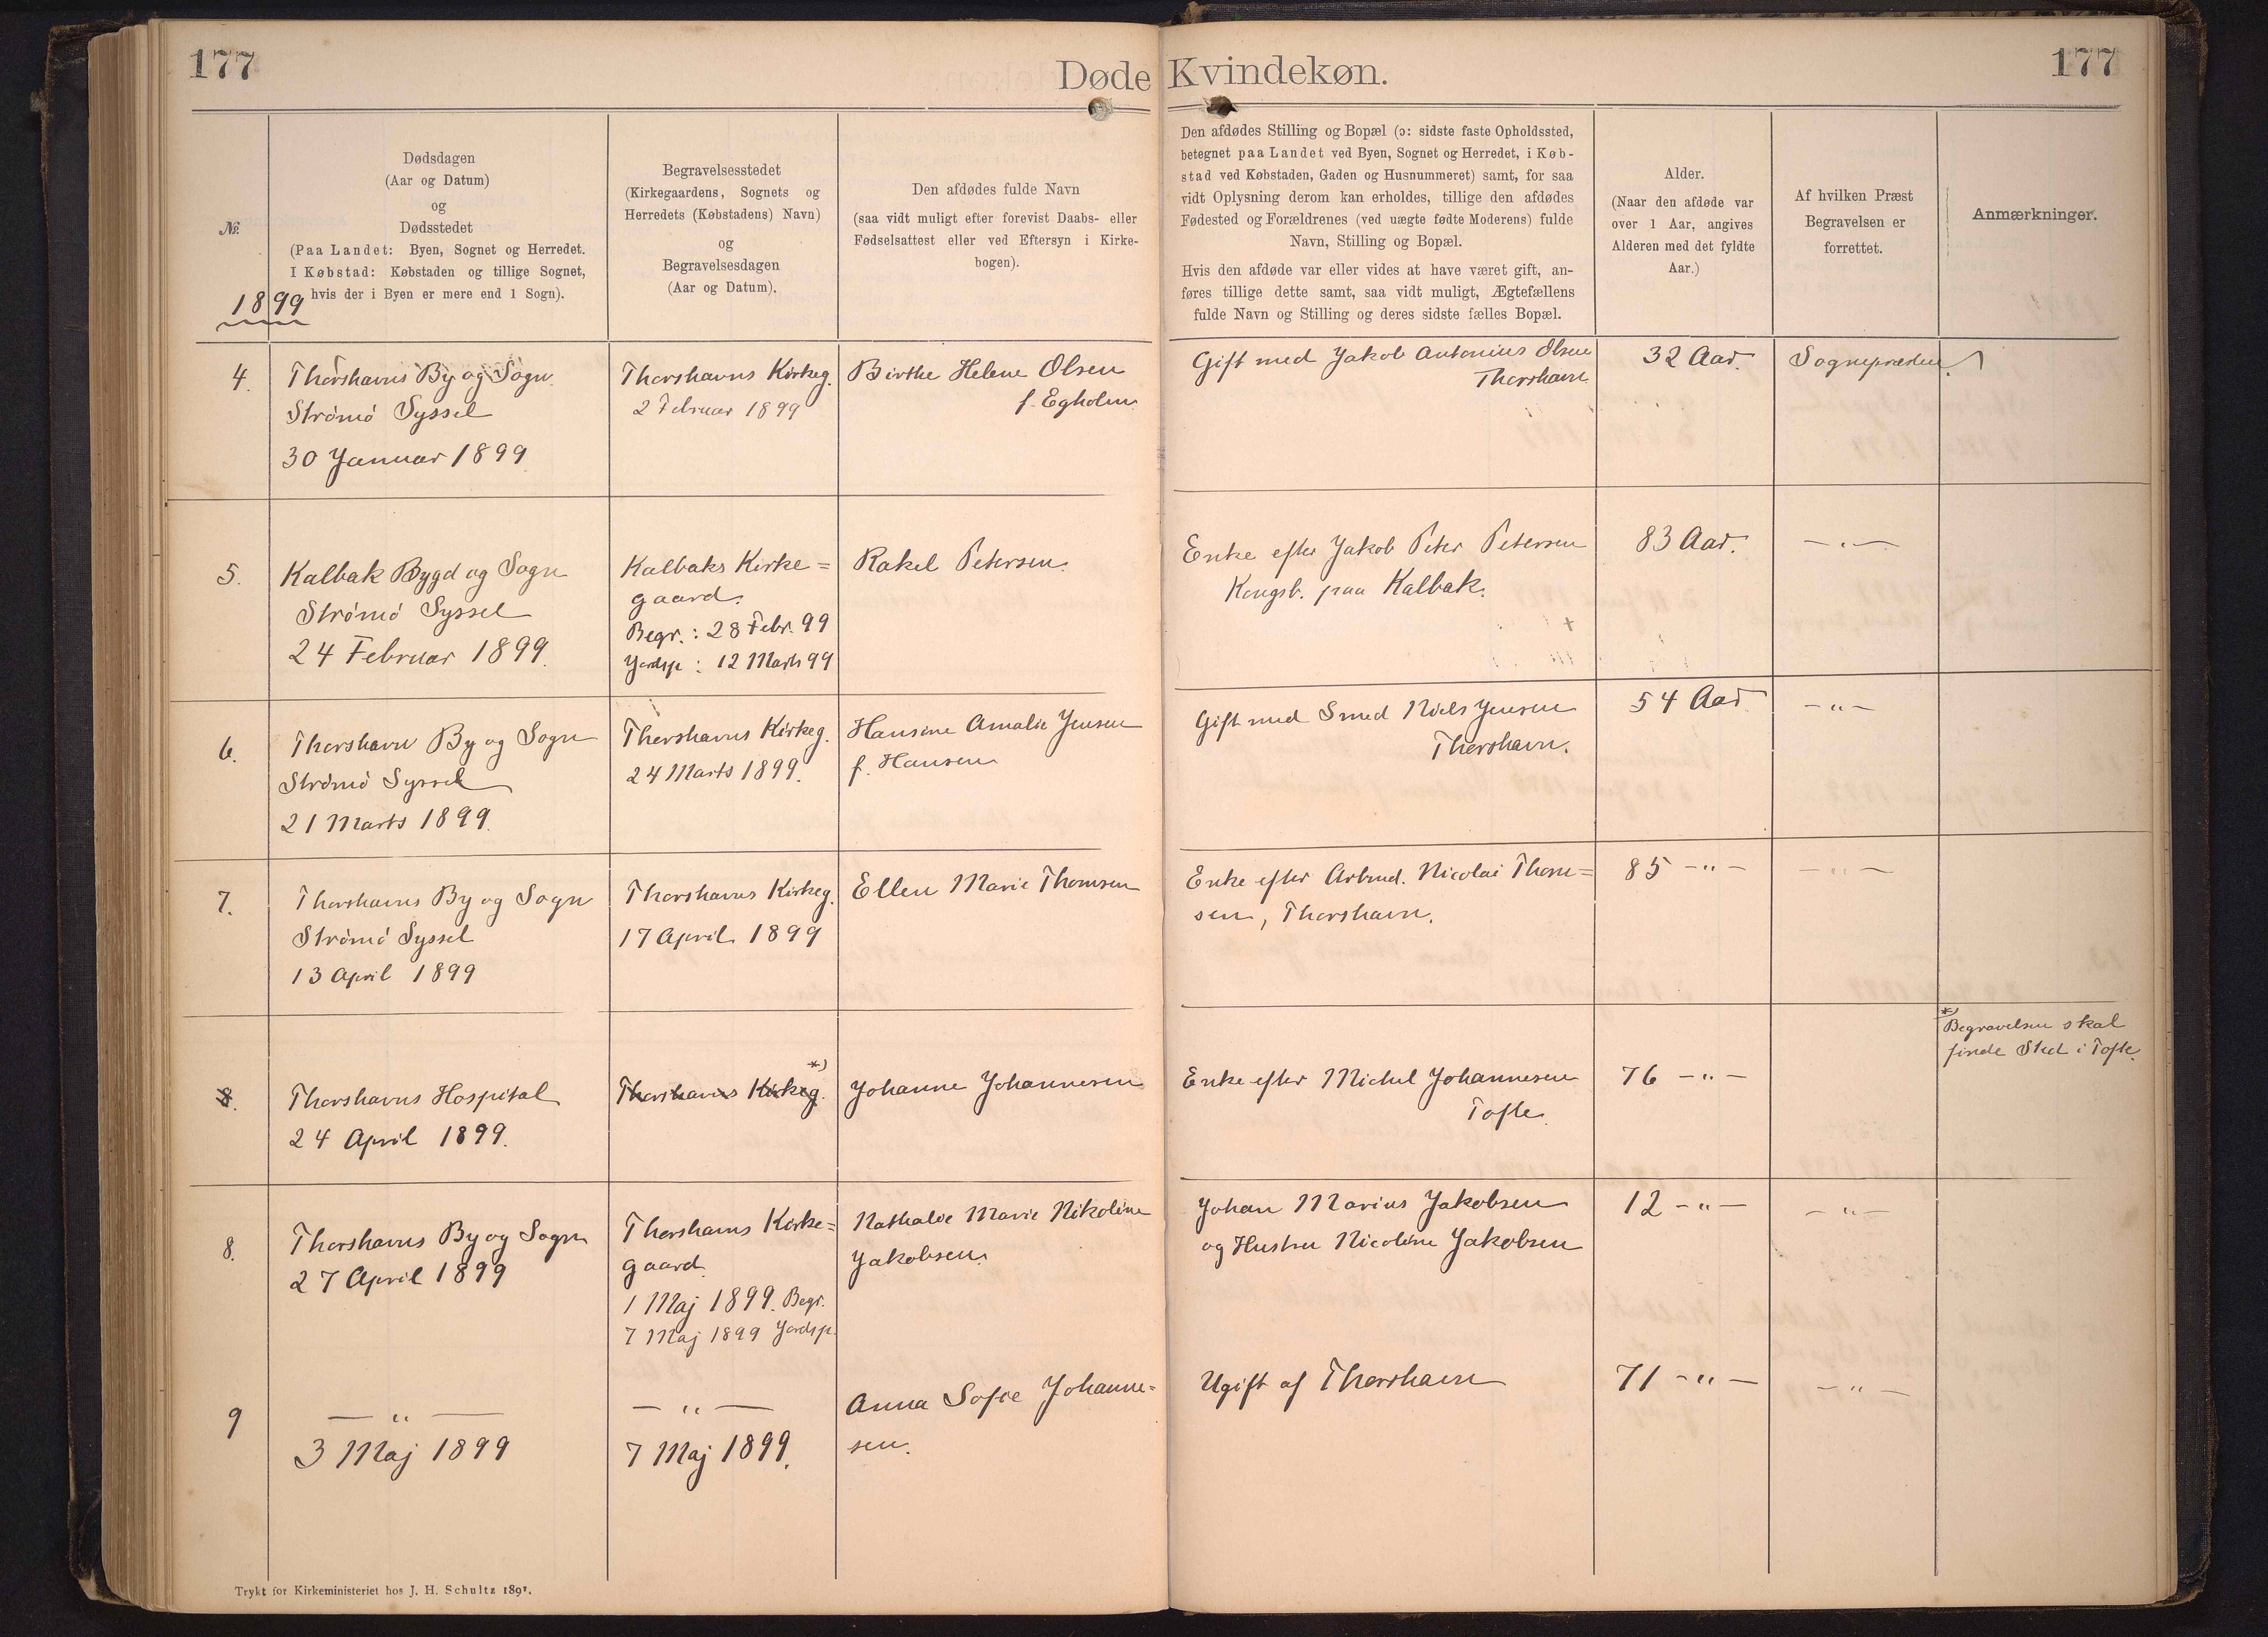 177
Døde Kvindekøn.
177
№
1899
Dødsdagen
(Aar og Datum)
og
Dødsstedet
(Paa Landet: Byen, Sognet og Herredet.
I Købstad: Købstaden og tillige Sognet,
hvis der i Byen er mere end 1 Sogn).
Begravelsesstedet
(Kirkegaardens, Sognets og
Herredets (Købstadens) Navn)
og
Begravelsesdagen
(Aar og Datum).
Den afdødes fulde Navn
(saa vidt muligt efter forevist Daabs- eller
Fødselsattest eller ved Eftersyn i Kirke-
bogen).
Den afdødes Stilling og Bopæl (ɔ: sidste faste Opholdssted,
betegnet paa Landet ved Byen, Sognet og Herredet, i Køb-
stad ved Købstaden, Gaden og Husnummeret) samt, for saa
vidt Oplysning derom kan erholdes, tillige den afdødes
Fødested og Forældrenes (ved uægte fødte Moderens) fulde
Navn, Stilling og Bopæl.
Hvis den afdøde var eller vides at have været gift, an-
føres tillige dette samt, saa vidt muligt, Ægtefællens
fulde Navn og Stilling og deres sidste fælles Bopæl.
Alder.
(Naar den afdøde var
over 1 Aar, angives
Alderen med det fyldte
Aar.)
Af hvilken Præst
Begravelsen er
forrettet.
Anmærkninger.
4.
Thorshavns By og Sogn
Strömö Syssel
30 Januar 1899
Thorshavns Kirkeg.
2 Februar 1899
Birthe Helene Olsen
f. Egholm
Gift med Jakob Antonius Olsen
Thorshavn
32 Aar.
Sognepræsten
5.
Kalbak Bygd og Sogn
Strömö Syssel
24 Februar 1899.
Kalbaks Kirke=
gaard.
Begr.: 28 Febr. 99
Jordsp: 12 Marts 99
Rakel Petersen.
Enke efter Jakob Peter Petersen
Kongsb. paa Kalbak.
83 Aar.
— „ —
6.
Thorshavn By og Sogn
Strömö Syssel
21 Marts 1899.
Thorshavns Kirkeg.
24 Marts 1899.
Hansine Amalie Jensen
f. Hansen
Gift med Smed Niels Jensen
Thorshavn.
54 Aar
— „ —
7.
Thorshavns By og Sogn
Strömö Syssel
13 April 1899
Thorshavns Kirkeg.
17 April 1899
Ellen Marie Thomsen
Enke efter Arbmd. Nicolai Thom=
sen, Thorshavn.
85 — „ —
— „ —
8.
Thorshavns Hospital
24 April 1899.
Thorshavns Kirkeg. *)
Johanne Johannesen
Enke efter Michel Johannesen
Tofte.
76 — „ —
*)
Begravelsen skal
finde Sted i Tofte.
8.
Thorshavns By og Sogn
27 April 1899
Thorshavns Kirke=
gaard.
1 Maj 1899. Begr.
7 Maj 1899 Jordsp.
Nathalie Marie Nikoline
Jakobsen.
Johan Marius Jakobsen
og Hustru Nicoline Jakobsen
12 — „ —
— „ —
9
— „ —
3 Maj 1899
— „ —
7 Maj 1899.
Anna Sofie Johanne=
sen.
Ugift af Thorshavn
71 — „ —
— „ —
Trykt for Kirkeministeriet hos J. H. Schultz 1891.